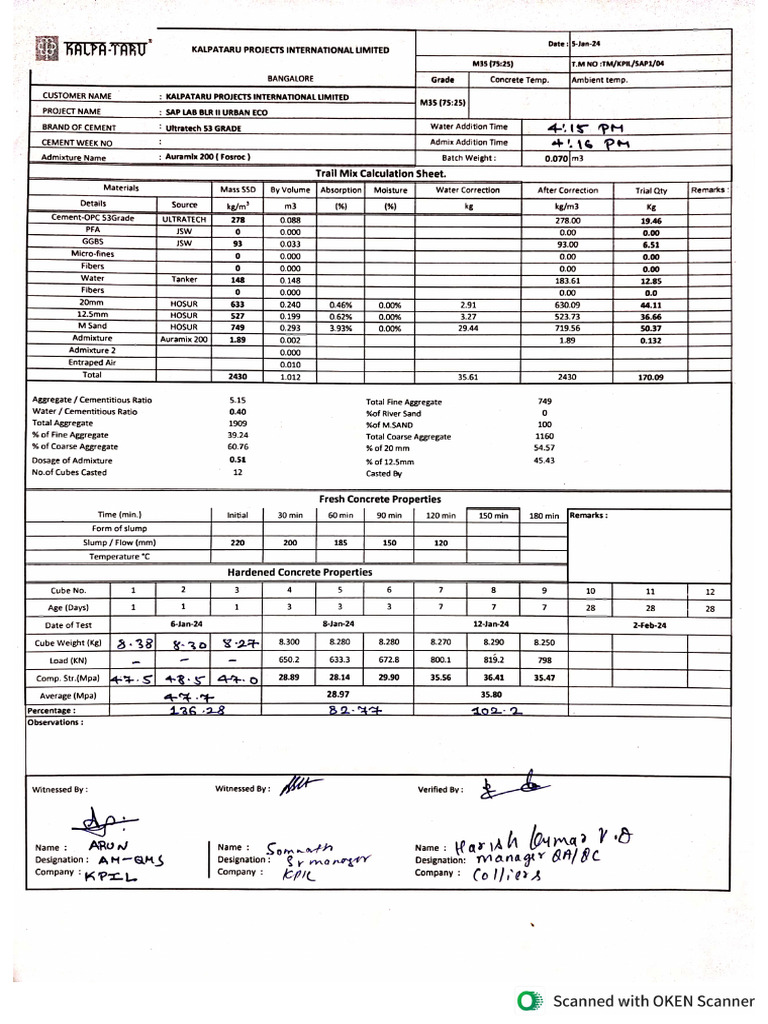 KALPA-TARU
KALPATARU PROJECTS INTERNATIONAL LIMITED
Date : 5-Jan-24
M35 (75:25) T.M NO :TM/KPIL/SAP1/04
BANGALORE Grade Concrete Temp. Ambient temp.
CUSTOMER NAME : KALPATARU PROJECTS INTERNATIONAL LIMITED M35 (75:25)
PROJECT NAME : SAP LAB BLR II URBAN ECO
BRAND OF CEMENT : Ultratech 53 GRADE Water Addition Time 4:15 PM
CEMENT WEEK NO : Admix Addition Time 4:16 PM
Admixture Name : Auramix 200 ( Fosroc ) Batch Weight : 0.070 m3
Trail Mix Calculation Sheet.
Materials Mass SSD By Volume Absorption Moisture Water Correction After Correction Trial Qty Remarks :
Details Source kg/m³ m3 (%) (%) kg kg/m3 Kg
Cement-OPC 53Grade ULTRATECH 278 0.088 278.00 19.46
PFA JSW 0 0.000 0.00 0.00
GGBS JSW 93 0.033 93.00 6.51
Micro-fines 0 0.000 0.00 0.00
Fibers 0 0.000 0.00 0.00
Water Tanker 148 0.148 183.61 12.85
Fibers 0 0.000 0.00 0.0
20mm HOSUR 633 0.240 0.46% 0.00% 2.91 630.09 44.11
12.5mm HOSUR 527 0.199 0.62% 0.00% 3.27 523.73 36.66
M Sand HOSUR 749 0.293 3.93% 0.00% 29.44 719.56 50.37
Admixture Auramix 200 1.89 0.002 1.89 0.132
Admixture 2 0.000
Entraped Air 0.010
Total 2430 1.012 35.61 2430 170.09
Aggregate / Cementitious Ratio 5.15 Total Fine Aggregate 749
Water / Cementitious Ratio 0.40 %of River Sand 0
Total Aggregate 1909 %of M.SAND 100
% of Fine Aggregate 39.24 Total Coarse Aggregate 1160
% of Coarse Aggregate 60.76 % of 20 mm 54.57
Dosage of Admixture 0.51 % of 12.5mm 45.43
No.of Cubes Casted 12 Casted By
Fresh Concrete Properties
Time (min.) Initial 30 min 60 min 90 min 120 min 150 min 180 min Remarks :
Form of slump
Slump / Flow (mm) 220 200 185 150 120
Temperature °C
Hardened Concrete Properties
Cube No. 1 2 3 4 5 6 7 8 9 10 11 12
Age (Days) 1 1 1 3 3 3 7 7 7 28 28 28
Date of Test 6-Jan-24 8-Jan-24 12-Jan-24 2-Feb-24
Cube Weight (Kg) 8.38 8.30 8.27 8.300 8.280 8.280 8.270 8.290 8.250
Load (KN) - - - 650.2 633.3 672.8 800.1 819.2 798
Comp. Str.(Mpa) 47.5 48.5 47.0 28.89 28.14 29.90 35.56 36.41 35.47
Average (Mpa) 47.7 28.97 35.80
Percentage : 136.28 82.77 102.2
Observations :
Witnessed By : Witnessed By : Verified By :
Name : ARUN Name : Somnath Name : Harish Kumar V.D
Designation : AM-QMS Designation : Sr manager Designation: manager QA/QC
Company : KPIL Company : KPIL Company : Colliers
Scanned with OKEN Scanner